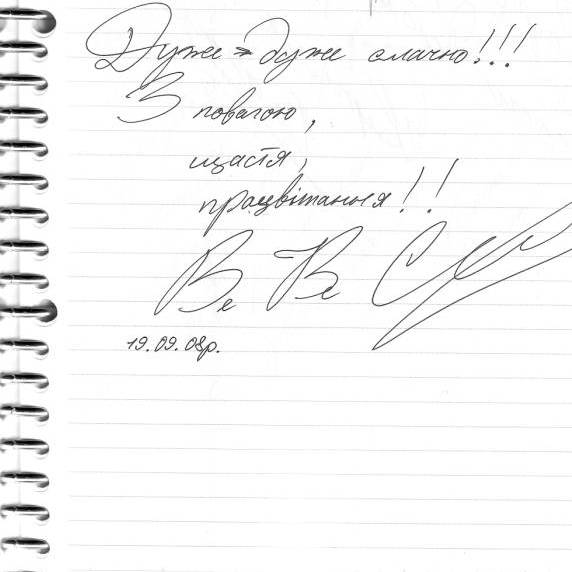 Дуже - дуже смачно!!!
З повагою,
щастя,
працвітання!!
Ве Ве
19.09.08р.